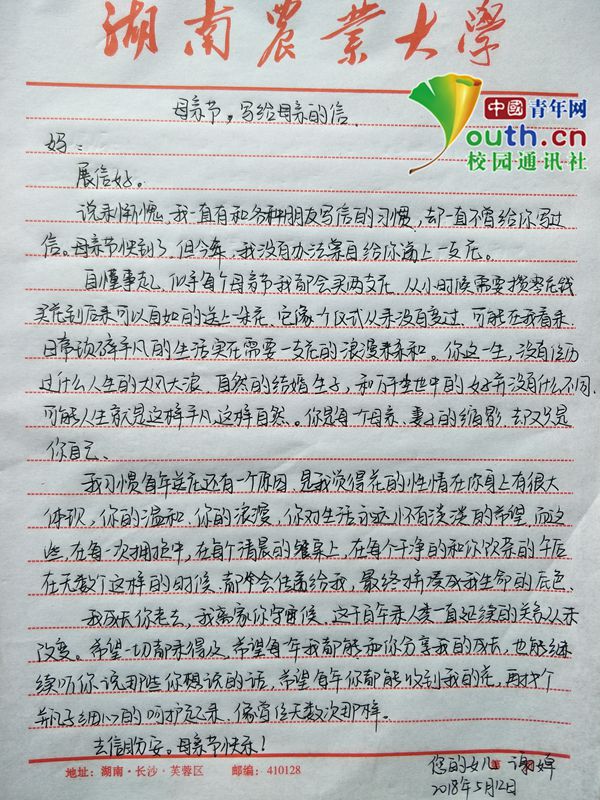 湖南农业大学
中國青年网
youth.cn
校园通讯社
母亲节，写给母亲的信
妈：
展信好。
说来惭愧，我一直有和各种朋友写信的习惯，却一直不曾给你写过
信。母亲节快到了，但今年，我没有办法亲自给你送上一支花。
自懂事起，似乎每个母亲节我都会买两支花，从小时候需要攒零花钱
买花到后来可以自如的送上一朵花，它像个仪式从来没有变过，可能在我看来，
日常琐碎平凡的生活实在需要一支花的浪漫来亲和。你这一生，没有经历
过什么人生的大风大浪，自然的结婚生子，和千千世世中的女子并没有什么不同，
可能人生就是这样平凡这样自然。你是每个母亲、妻子的缩影，却又只是
你自己。
我习惯每年送花还有一个原因，是我觉得花的性情在你身上有很大
体现，你的温和，你的浪漫，你对生活永远怀有淡淡的希望，而这
些，在每一次拥抱中，在每个清晨的餐桌上，在每个干净的和你饮茶的午后
在无数个这样的时候，都会传递给我，最终拼凑成我生命的底色。
我成长你老去，我离家你守候，这千百年来人类一直延续的关系从未
改变。希望一切都来得及，希望每年我都能和你分享我的成长，也能继
续听你说那些你想说的话，希望每年你都能收到我的花，再找个
花瓶子细心的呵护起来，像曾经无数次那样。
去信盼安。母亲节快乐！
您的女儿 谢婵
2018年5月12日
地址：湖南·长沙·芙蓉区 邮编：410128